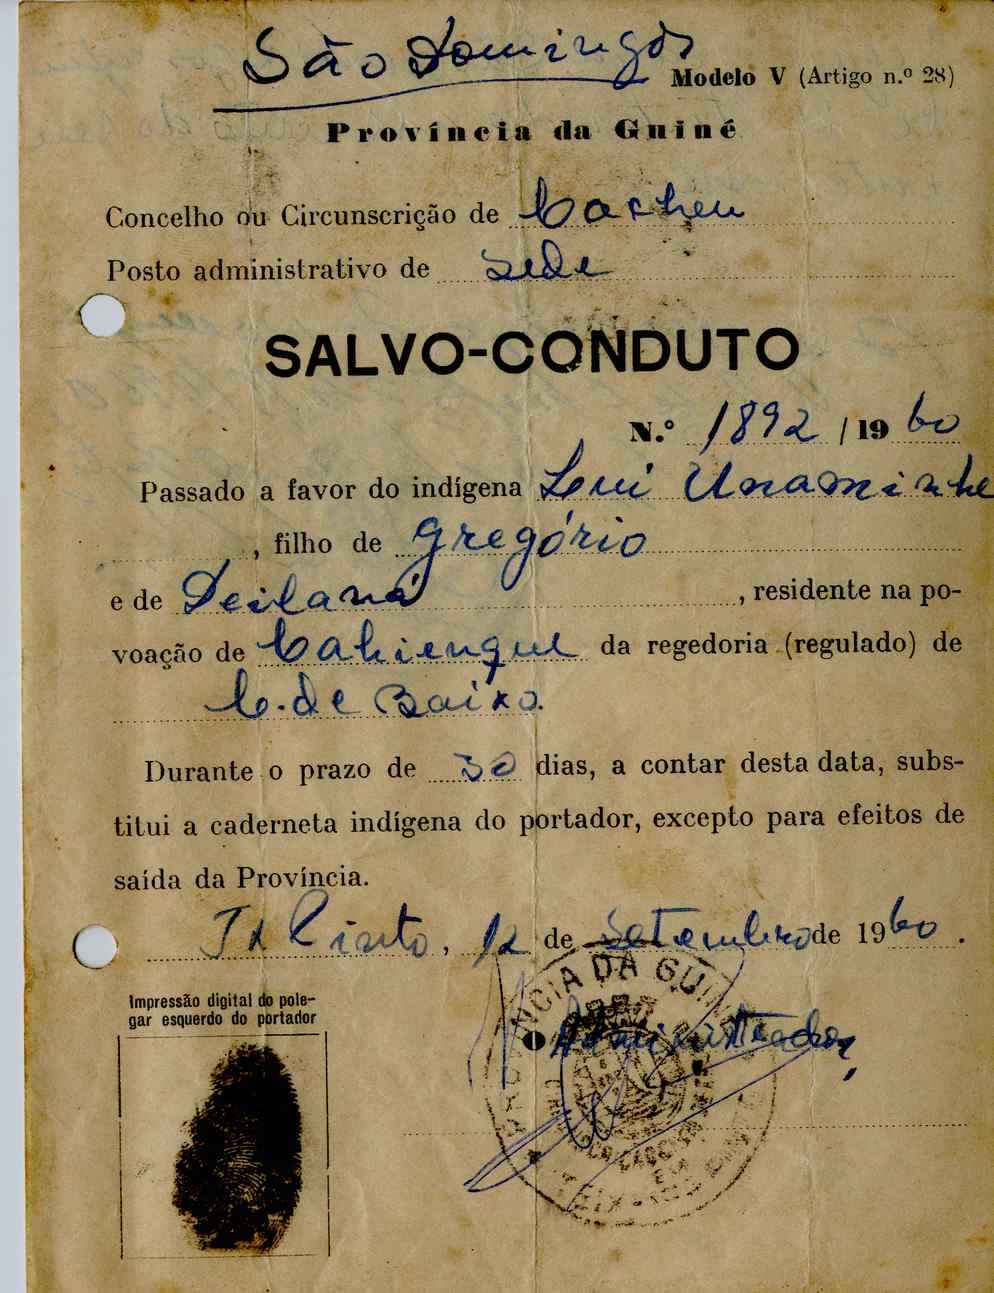 São Domingos
Modelo V (Artigo n.º 28)
Província da Guiné
Concelho ou Circunscrição de Cacheu
Posto administrativo de Sede
SALVO-CONDUTO
N.º 1892 / 1960
Passado a favor do indígena Lui Unaminhe
, filho de Gregório
e de , residente na po-
voação de da regedoria (regulado) de
C. de Baixo.
Durante o prazo de 30 dias, a contar desta data, subs-
titui a caderneta indígena do portador, excepto para efeitos de
saída da Província.
Tx Pinto, 12 de Setembro de 1960.
Impressão digital do pole-
gar esquerdo do portador
O Administrador,
PROVÍNCIA DA GUINÉ